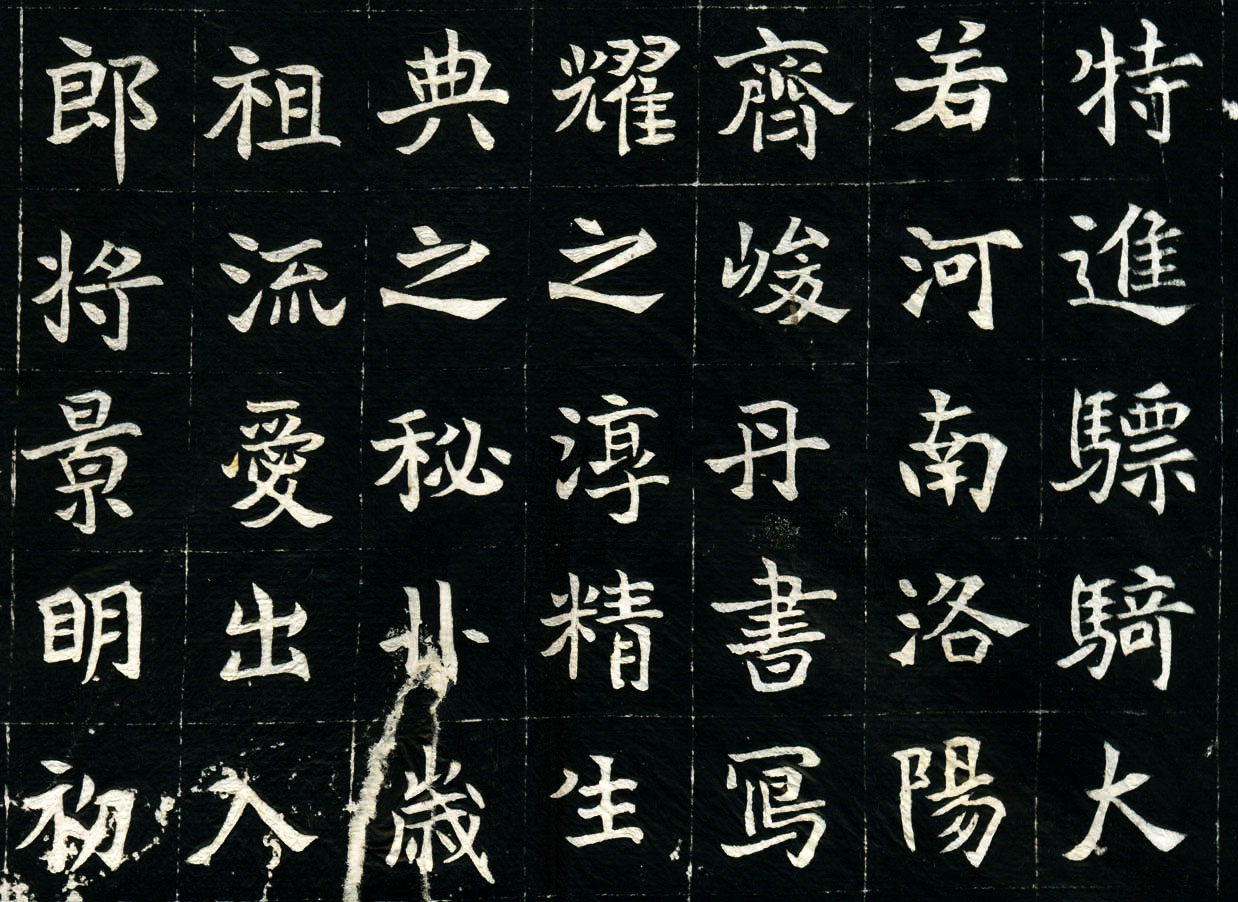 特進驃騎大
若河南洛陽
齊峻丹書寫
耀之淳精生
典之秘丱歲
祖流愛出入
郎將景明初